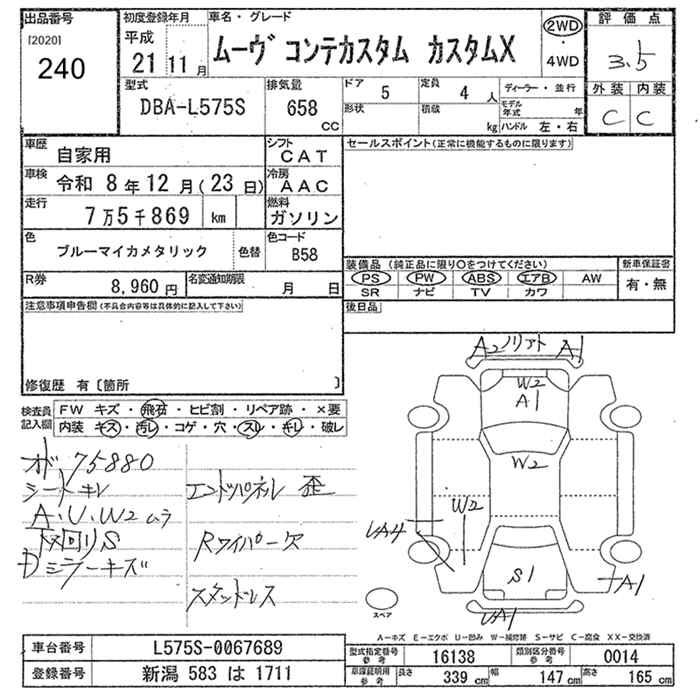 出品番号
[2020]
240
初度登録年月
平成
21 11 月
車名・グレード
ムーヴ コンテカスタム カスタムX
2WD
・
4WD
評価点
3.5
外装 内装
C C
型式
DBA-L575S
排気量
658
cc
ドア 5
定員 4 人
ディーラー・並行
形状
積載 kg
モデル年式 年
ハンドル 左・右
車歴
自家用
シフト
CAT
車検 令和 8年 12月(23日)
冷房
AAC
走行
7万5千869 km
燃料
ガソリン
色
ブルーマイカメタリック
色替
色コード
B58
R券
8,960円
名変通知期限
月 日
セールスポイント(正常に機能するものに限ります)
装備品 (純正品に限り○をつけてください)
PS PW ABS エアB AW
SR ナビ TV カワ
新車保証書
有・無
後日品
注意事項申告欄(不具合内容等は具体的に記入して下さい)
修復歴 有〔箇所 〕
検査員記入欄
FW キズ・飛石・ヒビ割・リペア跡・×要
内装 キズ・汚レ・コゲ・穴・スレ・キレ・破レ
オド 75880
シートキレ
A・U・W2 ムラ
下回りS
Dミラーキズ
エンドパネル 歪
Rワイパー欠
スタッドレス
A2 ノリアト A1
W2
A1
W2
W2
UA4
S1
A1
UA1
スペア
A-キズ E-エクボ U-凹み W-補修跡 S-サビ C-腐食 XX-交換済
車台番号
L575S-0067689
登録番号
新潟 583 は 1711
型式指定番号
参考
16138
類別区分番号
参考
0014
車庫証明用
参考
長さ 339 cm
幅 147 cm
高さ 165 cm